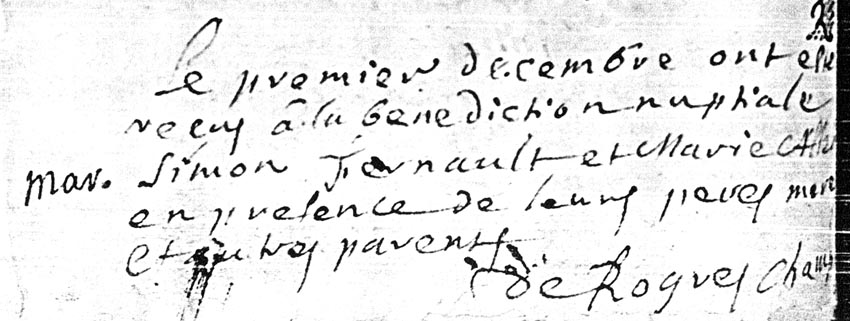 Le premier decembre ont esté
receus à la benediction nuptiale
mar. Simon Fernault et Marie
en presence de leurs peres mere
et autres parents
De Rogres